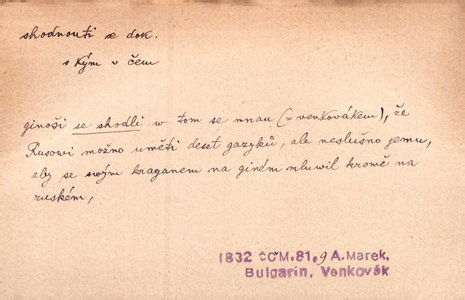 shodnouti se dok.
s kým v čem
ginoši se shodli w tom se mnau (= venkovákem), že
Rusowi možno uměti deset gazyků, ale neslušno jemu,
aby se swým kraganem na giném mluwil kromě na
ruském,
1832 ČČM. 81, 9 A. Marek,
Bulgarin, Venkovák